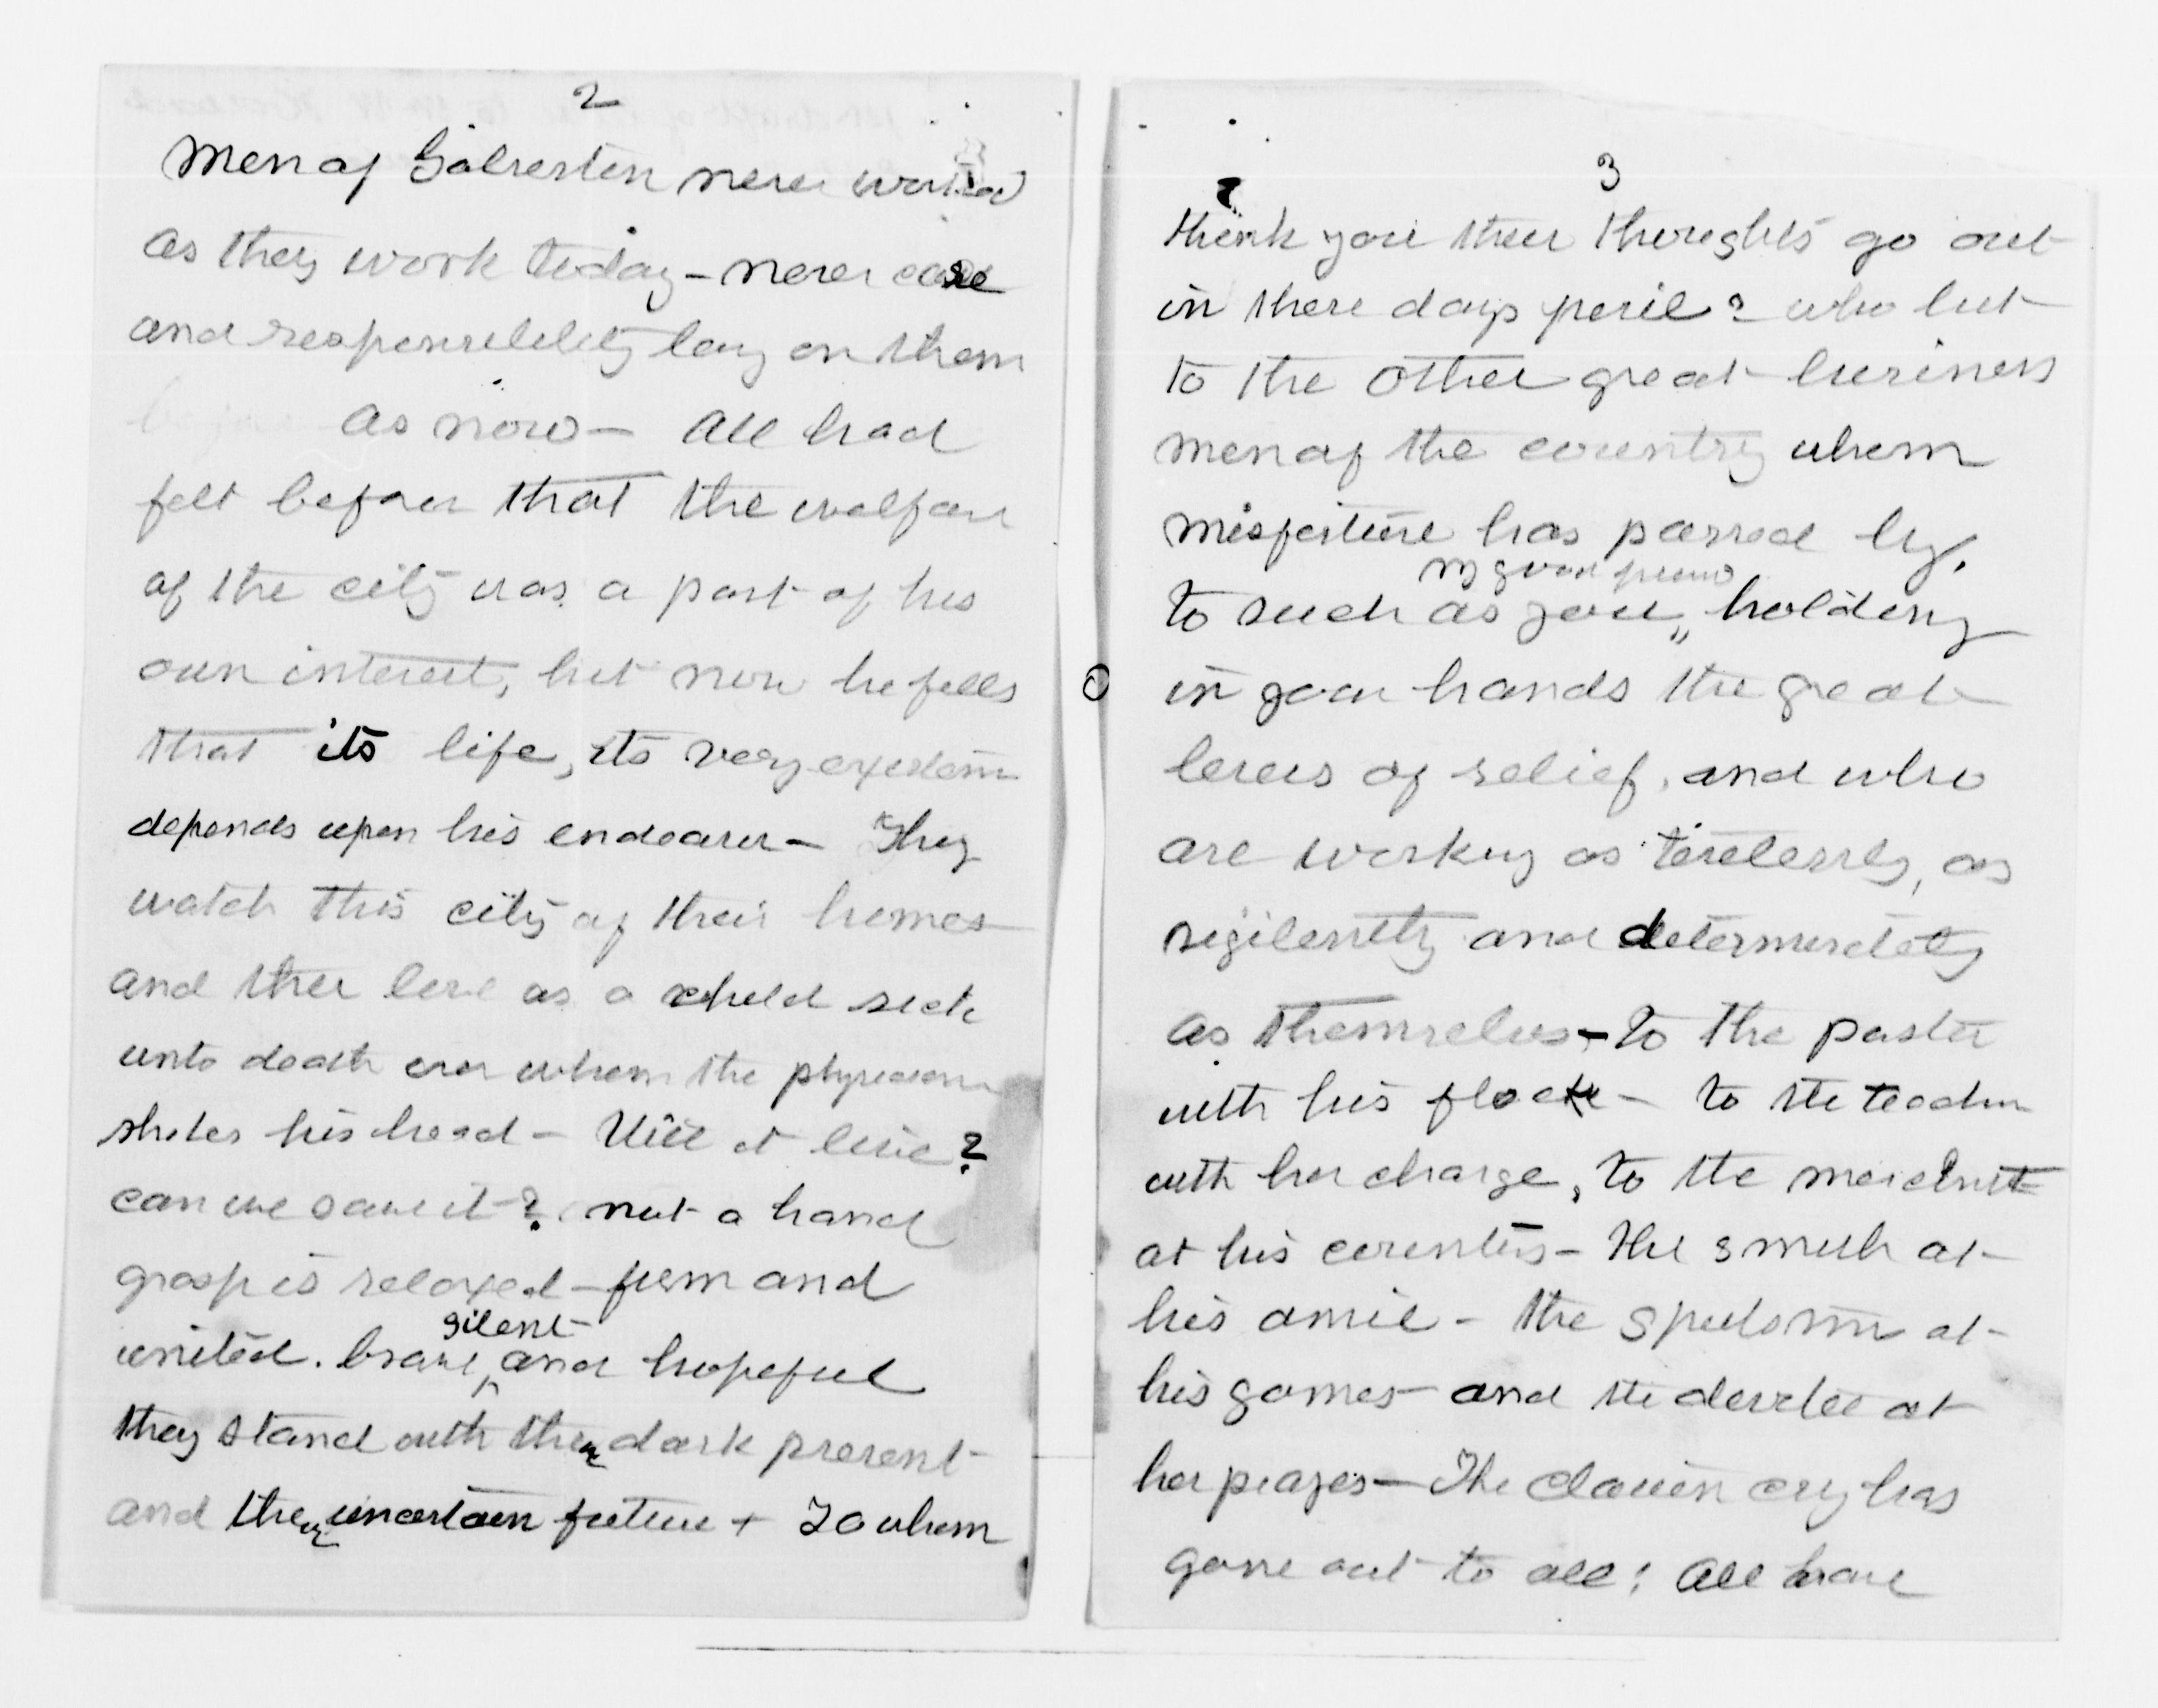 2
Men of Galveston never worked
as they work today - never care
and responsibility lay on them
as now - All had
felt before that the welfare
of the city was a part of his
own interest, but now he feels
that its life, its very existence
depends upon his endeavor - They
watch this city of their homes
and their love as a child sick
unto death over whom the physician
shakes his head - Will it live?
can we save it? not a hand
grasp is relaxed - firm and
silent
united. brave, and hopeful
they stand with their dark present
and their uncertain future + To whom
3
think you their thoughts go out
in these days peril? who but
to the other great business
men of the country whom
misfortune has passed by.
my good friend
to such as you, holding
in your hands the great
levers of relief, and who
are working as tirelessly, as
vigilently and determinately
as themselves - to the pastor
with his flock - to the teacher
with her charge, to the merchant
at his counters - the smith at
his anvil - the sportsman at
his games - and the devotee at
her prayers - The clarion cry has
gone out to all! All have